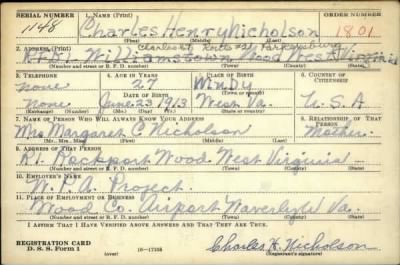 SERIAL NUMBER 1. NAME (Print) ORDER NUMBER
1148 Charles Henry Nicholson 1801
(First) (Middle) (Last)
2. ADDRESS (Print) Charles St. Parkersburg
Rt. #1 Williamstown Wood West Virginia
(Number and street or R. F. D. number) (Town) (County) (State)
3. TELEPHONE 4. AGE IN YEARS 5. PLACE OF BIRTH 6. COUNTRY OF CITIZENSHIP
none 27
none June 23 1913 West Va. U.S.A
(Exchange) (Number) (Mo.) (Day) (Yr.) (State or country)
7. NAME OF PERSON WHO WILL ALWAYS KNOW YOUR ADDRESS 8. RELATIONSHIP OF THAT PERSON
Mrs Margaret C Nicholson Mother
(Mr., Mrs., Miss) (First) (Middle) (Last)
9. ADDRESS OF THAT PERSON
R1. Rockport Wood West Virginia
(Number and street or R. F. D. number) (Town) (County) (State)
10. EMPLOYER'S NAME
W. P. A. Project.
11. PLACE OF EMPLOYMENT OR BUSINESS
Wood Co. Airport Waverly W Va.
(Number and street or R. F. D. number) (Town) (County) (State)
I AFFIRM THAT I HAVE VERIFIED ABOVE ANSWERS AND THAT THEY ARE TRUE.
REGISTRATION CARD
D. S. S. Form 1 16—17105 Charles H. Nicholson
(over) (Registrant's signature)